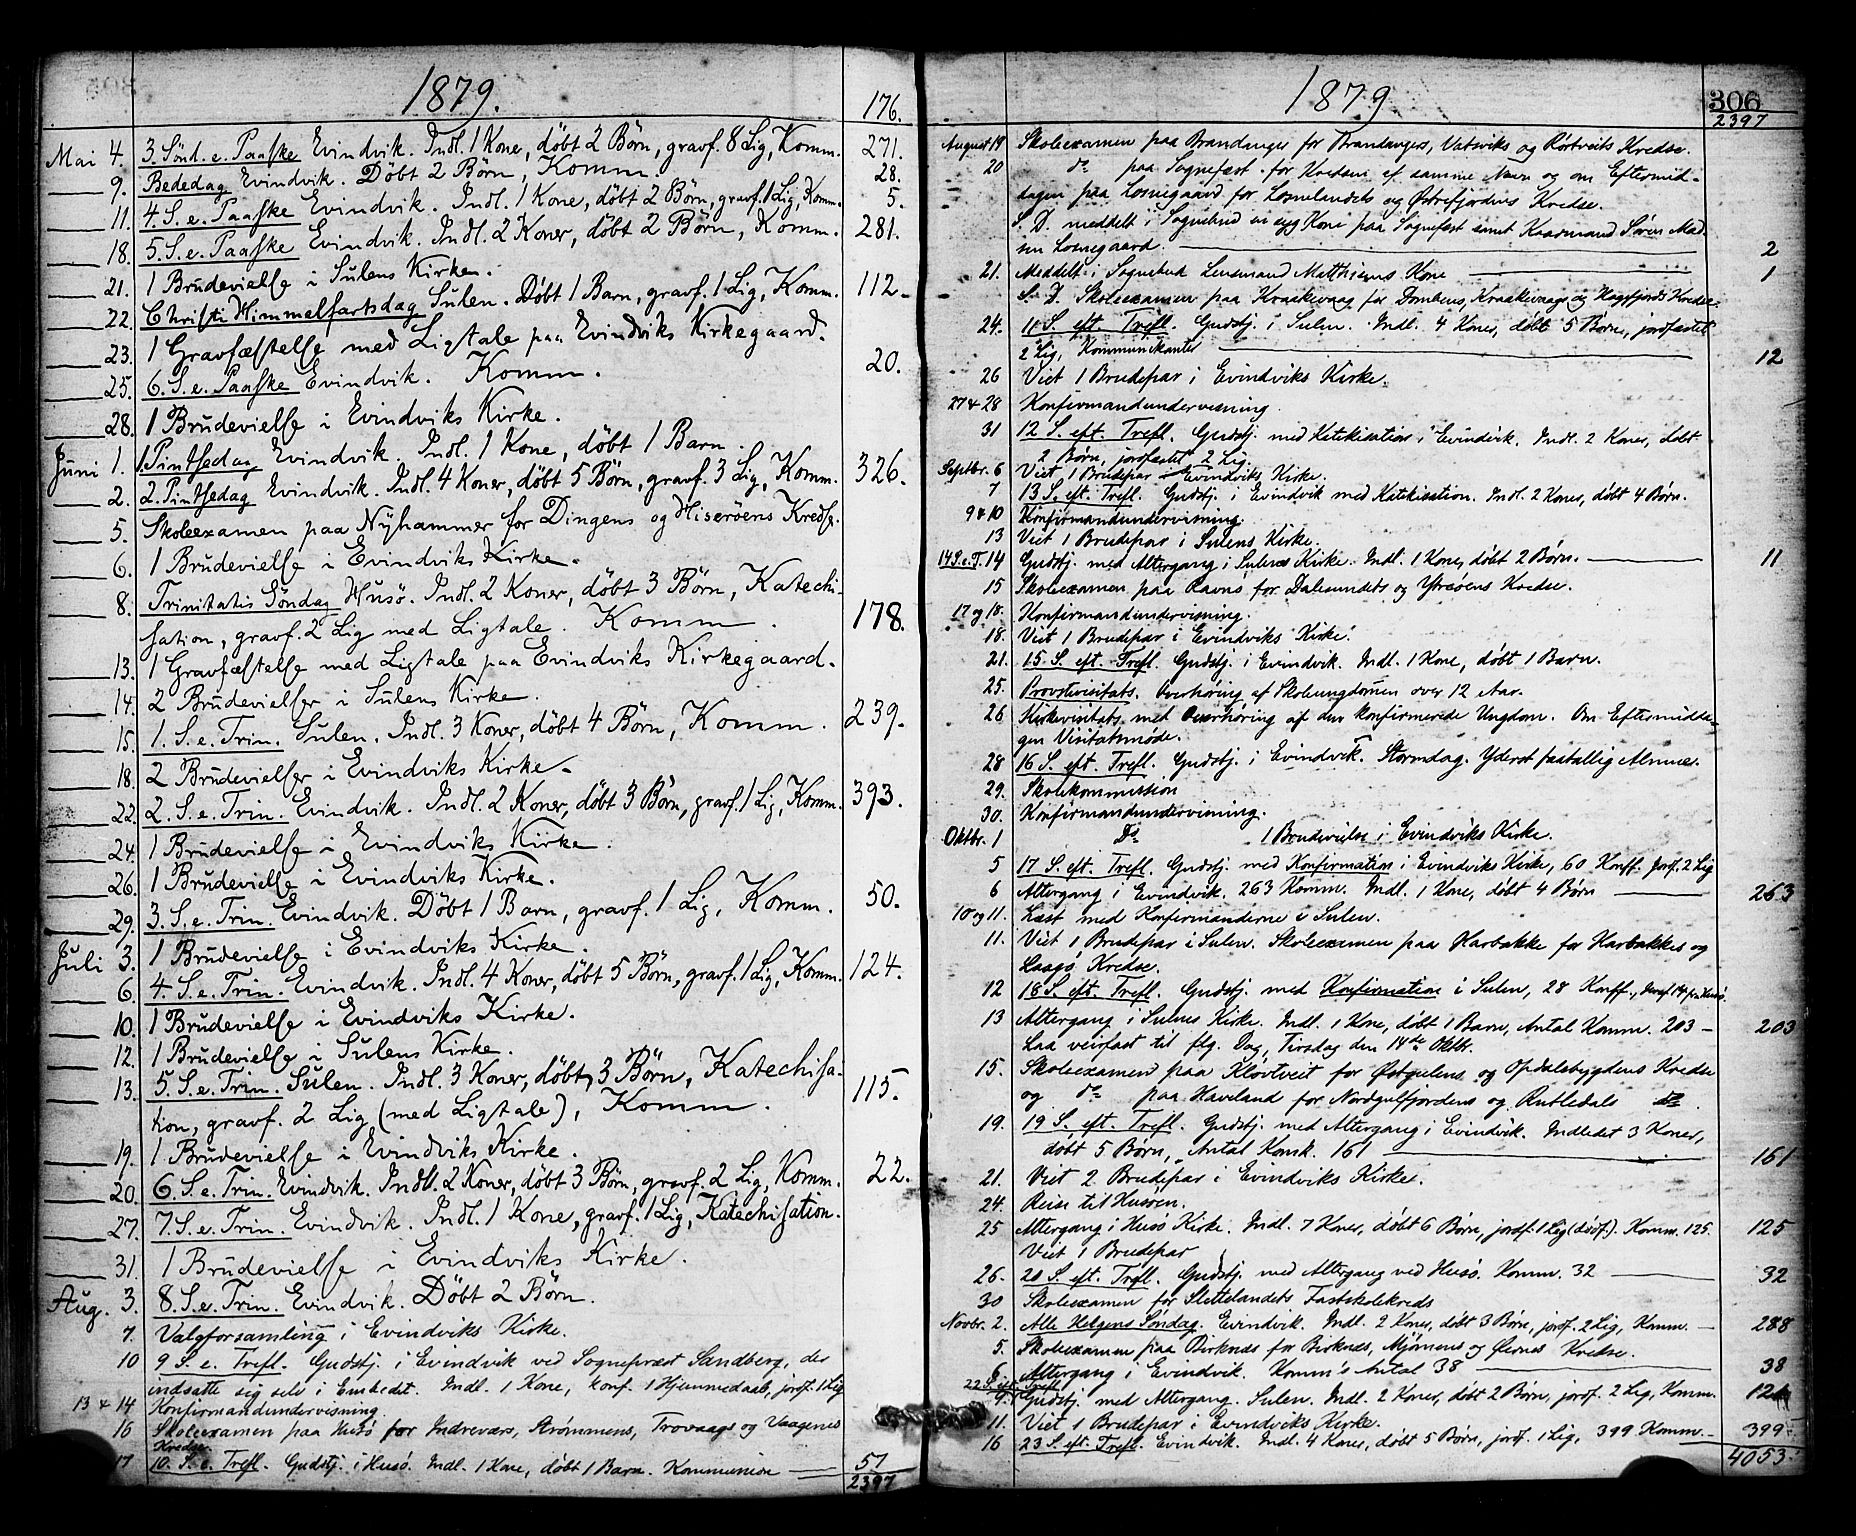 1879.
176.
Mai 4. 3. Sönd. e. Paaske Evindvik. Indl. 1 Kone, döbt 2 Börn, gravf. 8 Lig, Komm. 271.
9. Bededag Evindvik. Döbt 2 Börn, Komm. 28.
11. 4. S. e. Paaske Evindvik. Indl. 1 Kone, döbt 2 Börn, gravf. 1 Lig, Komm. 5.
18. 5. S. e. Paaske Evindvik. Indl. 2 Koner, döbt 2 Börn, Komm. 281.
21. 1 Brudevielse i Sulens Kirke.
22. Christi Himmelfartsdag Sulen. Döbt 1 Barn, gravf. 1 Lig, Komm. 112.
23. 1 Gravfæstelse med Ligtale paa Evindviks Kirkegaard.
25. 6. S. e. Paaske Evindvik. Komm. 20.
28. 1 Brudevielse i Evindviks Kirke.
Juni 1. 1. Pintsedag Evindvik. Indl. 1 Kone, döbt 1 Barn.
2. 2. Pintsedag Evindvik. Indl. 4 Koner, döbt 5 Börn, gravf. 3 Lig, Komm. 326.
5. Skoleexamen paa Nyhammer for Dingens og Hiseröens Kredse.
6. 1 Brudevielse i Evindviks Kirke.
8. Trinitatis Söndag Husö. Indl. 2 Koner, döbt 3 Börn, Katechi-
sation, gravf. 2 Lig med Ligtale. Komm. 178.
13. 1 Gravfæstelse med Ligtale paa Evindviks Kirkegaard.
14. 2 Brudevielser i Sulens Kirke.
15. 1. S. e. Trin. Sulen. Indl. 3 Koner, döbt 4 Börn, Komm. 239.
18. 2 Brudevielser i Evindviks Kirke.
22. 2. S. e. Trin. Evindvik. Indl. 2 Koner, döbt 3 Börn, gravf. 1 Lig, Komm. 393.
24. 1 Brudevielse i Evindviks Kirke.
26. 1 Brudevielse i Evindviks Kirke.
29. 3. S. e. Trin. Evindvik. Döbt 1 Barn, gravf. 1 Lig, Komm. 50.
Juli 3. 1 Brudevielse i Evindviks Kirke.
6. 4. S. e. Trin. Evindvik. Indl. 4 Koner, döbt 5 Börn, gravf. 1 Lig, Komm. 124.
10. 1 Brudevielse i Evindviks Kirke.
12. 1 Brudevielse i Sulens Kirke.
13. 5. S. e. Trin. Sulen. Indl. 3 Koner, döbt 3 Börn, Katechisa-
tion, gravf. 2 Lig (med Ligtale), Komm. 115.
19. 1 Brudevielse i Evindviks Kirke.
20. 6. S. e. Trin. Evindvik. Indl. 2 Koner, döbt 3 Börn, gravf. 2 Lig, Komm. 22.
27. 7. S. e. Trin. Evindvik. Indl. 1 Kone, gravf. 1 Lig, Katechisation.
31. 1 Brudevielse i Evindviks Kirke.
Aug. 3. 8. S. e. Trin. Evindvik. Döbt 2 Börn.
7. Valgforsamling i Evindviks Kirke.
10 9 S. e. Trefl. Gudstj. i Evindvik ved Sogneprest Sandberg, der
indsatte sig selv i Embedet. Indl. 1 Kone, konf. 1 Hjemmedaab, jordf. 1 Lig
13 & 14 Konfirmandundervisning
16 Skoleexamen paa Husö for Indreværs, Strömmens, Trovaags og Vaagenes
Kredse
17 10. S. e. Trefl. Gudstj. i Husö. Indl. 1 Kone, döbt 1 Barn. Kommunion 57
2397
1879
306
2397
August 19 Skoleexamen paa Brandanger for Brandangers, Vatsviks og Rörtveits Kredse.
20 do paa Sognefæst for Kredsen af samme Navn og om Eftermid-
dagen paa Losnegaard for Losnelandets og Østrefjordens Kredse.
S. D. meddelt i Sognebud en syg Kone paa Sognefæst samt Kaarmand Sören Mad-
sen Losnegaard. 2
21. Meddelt i Sognebud Lensmand Matthiesens Kone 1
S. D. Skoleexamen paa Kraakevaag for Dombens, Kraakevaags og Hagefjords Kredse.
24. 11 S. eft. Trefl. Gudstj. i Sulen. Indl. 4 Koner, döbt 5 Börn, jordfæstet
2 Lig, Kommunikanter 12
26 Viet 1 Brudepar i Evindviks Kirke.
27 & 28 Konfirmandundervisning.
31 12 S. eft. Trefl. Gudstj. med Katekisation i Evindvik. Indl. 2 Koner, döbt
2 Börn, jordfæstet 2 Lig.
Septbr. 6 Viet 1 Brudepar i Evindviks Kirke.
7 13 S. eft. Trefl. Gudstj. i Evindvik med Katekisation. Indl. 2 Koner, döbt 4 Börn.
9 & 10 Konfirmandundervisning.
13 Viet 1 Brudepar i Sulens Kirke.
14 S. e. T. 14 Gudstj. med Altergang i Sulens Kirke. Indl. 1 Kone, döbt 2 Börn. 11
15 Skoleexamen paa Ravnö for Dalesundets og Ytreöens Kredse.
17 og 18. Konfirmandundervisning.
18. Viet 1 Brudepar i Evindviks Kirke.
21. 15. S. eft. Trefl. Gudstj. i Evindvik. Indl. 1 Kone, döbt 1 Barn.
25. Provstevisitats. Overhöring af Skoleungdommen over 12 Aar.
26 Kirkevisitats med Overhöring af den konfirmerede Ungdom. Om Eftermidda-
gen Visitatsmöde.
28 16 S. eft. Trefl. Gudstj. i Evindvik. Stormdag. Yderst faatallig Almue.
29. Skolekommission
30. Konfirmandundervisning.
Oktbr. 1 Do 1 Brudevielse i Evindviks Kirke.
5 17 S. eft. Trefl. Gudstj. med Konfirmation i Evindviks Kirke, 60 Konff. jordf. 2 Lig
6 Altergang i Evindvik. 263 Komm. Indl. 1 Kone, döbt 4 Börn 263
10 og 11. Læst med Konfirmanderne i Sulen.
11. Viet 1 Brudepar i Sulen. Skoleexamen paa Harbakke for Harbakkes og
Laagö Kredse.
12 18 S. eft. Trefl. Gudstj. med Konfirmation i Sulen, 28 Konff., deraf 14 fra Husö.
13 Altergang i Sulens Kirke. Indl. 1 Kone, döbt 1 Barn, Antal Komm. 203 203
Laa veirfast til flg. Dag, Tirsdag den 14de Oktbr.
15. Skoleexamen paa Klovtveit for Østgulens og Opdalsbygdens Kredse
og do paa Haveland for Nordgulfjordens og Rutledals do
19. 19 S. eft. Trefl. Gudstj. med Altergang i Evindvik. Indledet 3 Koner,
döbt 5 Börn, Antal Komk. 161 161
21. Viet 2 Brudepar i Evindviks Kirke.
24. Reise til Husöen.
25 Altergang i Husö Kirke. Indl. 7 Koner, döbt 6 Börn, jordf. 1 Lig (dödf.). Komm. 125. 125
Viet 1 Brudepar
26. 20 S. eft. Trefl. Gudstj. med Altergang ved Husö. Komm. 32 32
30 Skoleexamen for Slettelandets Fastskolekreds
Novbr. 2. Alle Helgens Söndag. Evindvik. Indl. 2 Koner, döbt 3 Börn, jordf. 2 Lig, Komm. 288
5. Skoleexamen paa Birknæs for Birknæs, Mjömens og Øernes Kredse.
6 Altergang i Evindvik. Komm's Antal 38 38
22 S. eft. Trefl.
9. Gudstj. med Altergang. Sulen. Indl. 2 Koner, döbt 2 Börn, jordf. 2 Lig, Komm.
11. Viet 1 Brudepar i Evindviks Kirke.
16 23 S. eft. Trefl. Evindvik. Indl. 4 Koner, döbt 5 Börn, jordf. 1 Lig, 399 Komm. 399
4053